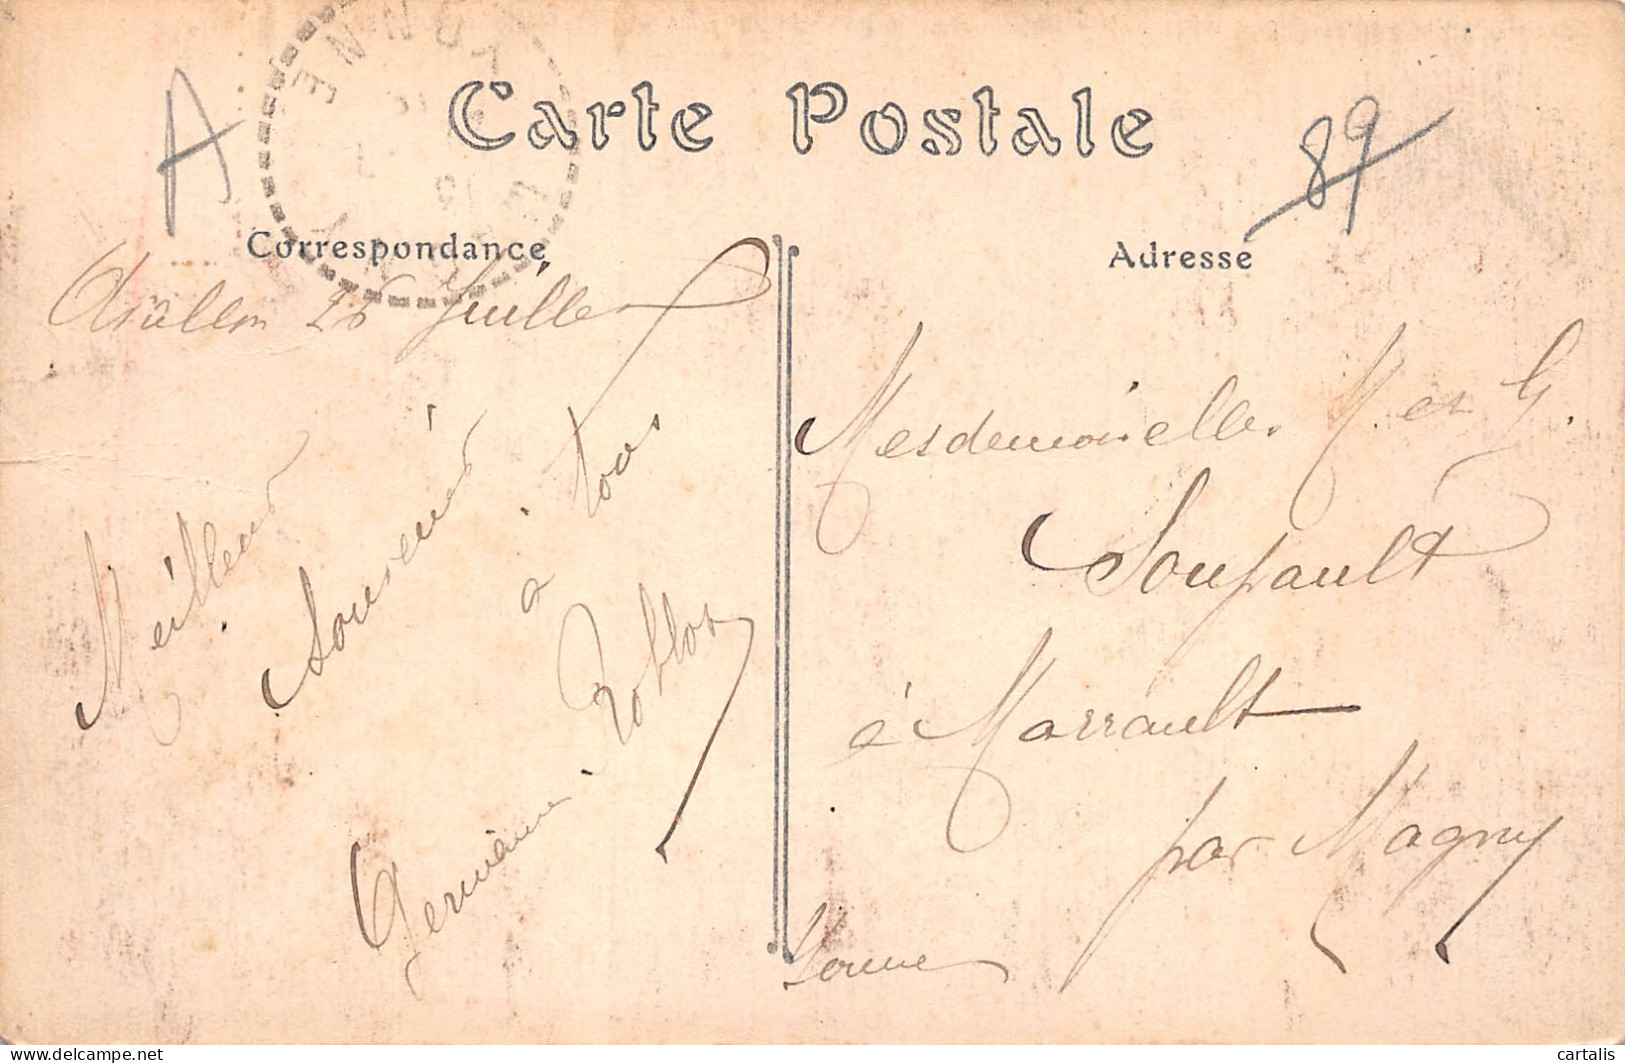 Carte Postale
A
89
YONNE
Correspondance
Adresse
26 Juillet
Meilleurs
Souvenirs
à tous
Germaine Roblot
Mesdemoiselles M. et G.
Soupault
à Marrault
par Magny
Yonne
delcampe.net
cartalis